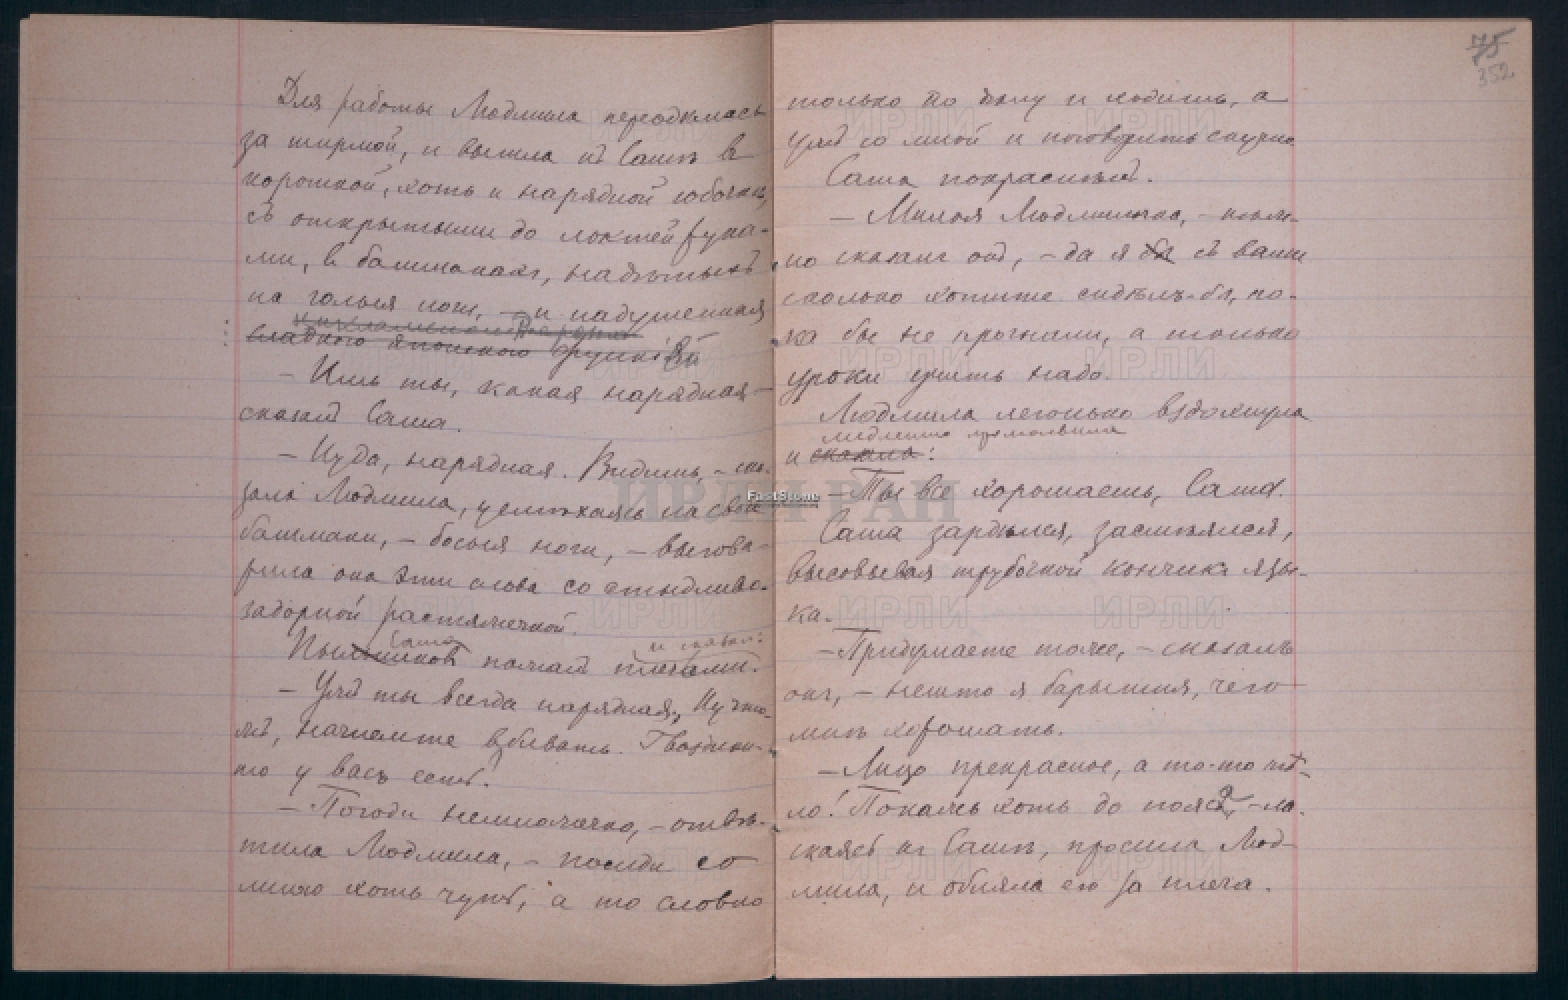 75
352
Для работы Людмила переодѣлась
за ширмой, и вышла къ Сашѣ въ
короткой, хоть и нарядной юбочкѣ,
съ открытыми до локтей рука-
ми, въ башмакахъ, надѣтыхъ
на голыя ноги, – и надушенная
сладкою японскою функіей
– Ишь ты, какая нарядная –
сказалъ Саша.
– Ну да, нарядная. Видишь, – ска-
зала Людмила, усмѣхаясь на свои
башмаки, – босыя ноги, – выгово-
рила она эти слова со стыдливо-
задорной растяжечкой.
Саша и сказалъ:
Пыльниковъ пожалъ плечами.
– Ужъ ты всегда нарядная. Ну что-
жъ, начнемте вбивать. Гвоздики-
то у васъ есть?
– Погоди немножечко, – отвѣ-
тила Людмила, – посиди со
мною хоть чуть, а то словно
только по дѣлу и ходишь, а
ужъ со мной и поговорить скучно
Саша покраснѣлъ.
– Милая Людмилочка, – нѣж-
но сказалъ онъ, – да я бы съ вами
сколько хотите сидѣлъ-бы, по-
ка бы не прогнали, а только
уроки учить надо.
Людмила легонько вздохнула
медленно промолвила
и сказала:
– Ты все хорошѣешь, Саша.
Саша зардѣлся, засмѣялся,
высовывая трубочкой кончикъ язы-
ка.
– Придумаете тоже, – сказалъ
онъ, – нешто я барышня, чего
мнѣ хорошѣть.
– Лицо прекрасное, а то-то тѣ-
ло! Покажь хоть до пояса, – ла-
скаясь къ Сашѣ, просила Люд-
мила, и обняла его за плеча.
ИРЛИ РАН
FastStone